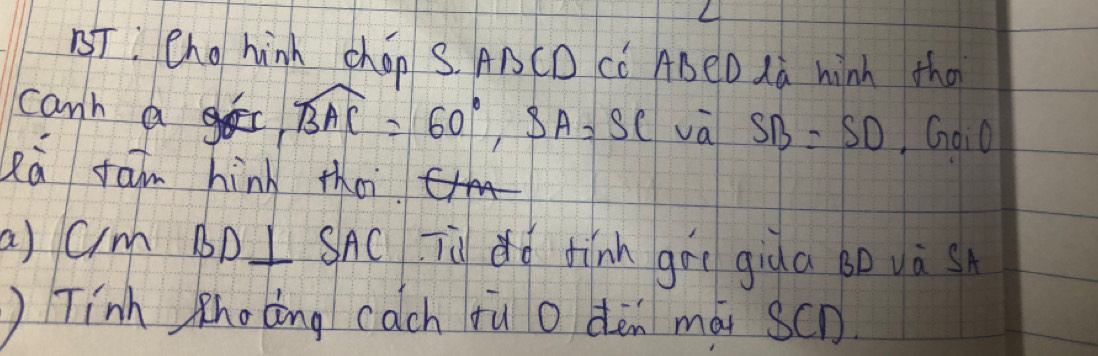 BT: Cho hình chóp S.ABCD có ABCD là hình thoi
cạnh a góc BAC = 60°, SA = SC và SB = SD. Gọi O
là tâm hình thoi. C/m
a) C/m BD ⊥ SAC. Từ đó tính góc giữa BD và SA
) Tính khoảng cách từ O đến mặt SCD.